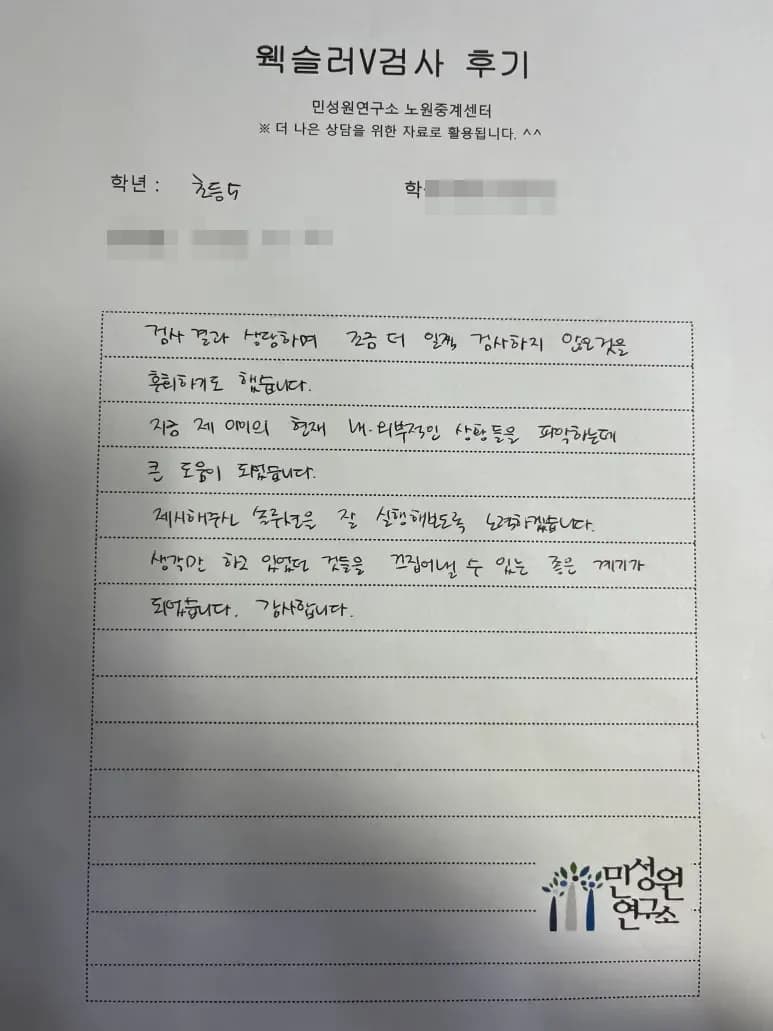 웩슬러V검사 후기
민성원연구소 노원중계센터
※ 더 나은 상담을 위한 자료로 활용됩니다. ^^
학년 : 초등5 학
검사 결과 상담하며 조금 더 일찍 검사하지 않은것을
후회하기도 했습니다.
지금 제 아이의 현재 내·외부적인 상황들을 파악하는데
큰 도움이 되었습니다.
제시해주신 솔루션을 잘 실행해보도록 노력하겠습니다.
생각만 하고 있었던 것들을 끄집어낼 수 있는 좋은 계기가
되었습니다. 감사합니다.
민성원
연구소